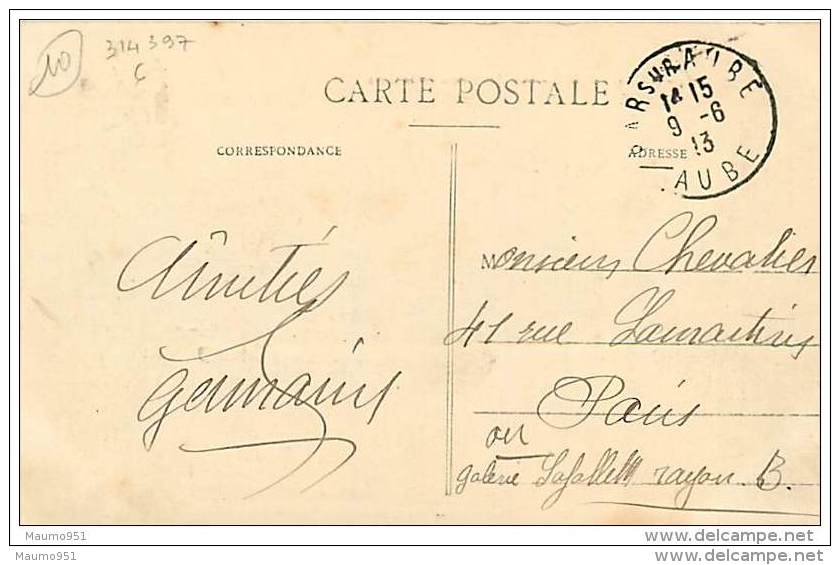 10
314397
C
CARTE POSTALE
CORRESPONDANCE
ADRESSE
BAR SUR AUBE
14 15
9 -6
13
AUBE
Amitiés
Germain
Monsieur Chevalier
41 rue Lamartine
Paris
ou
galerie Lafallette rayon B.
Maumo951
Maumo951
www.delcampe.net